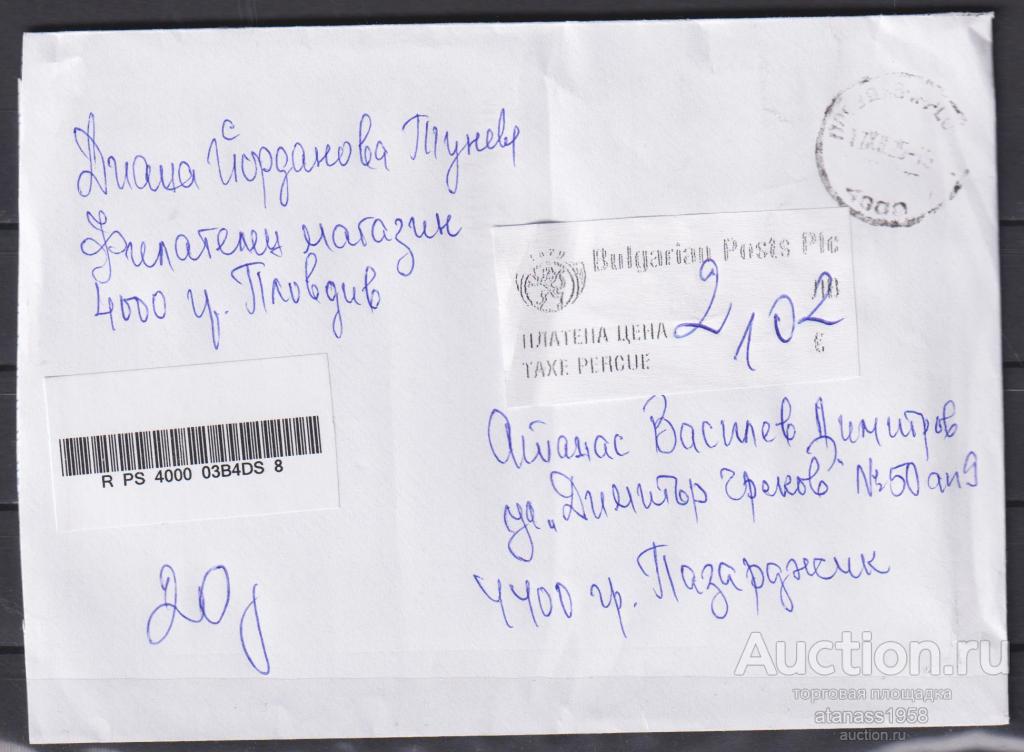 Диана Йорданова Тунева
Филателен магазин
4000 гр. Пловдив
1879
Bulgarian Posts Plc
ЛВ
2,02
ПЛАТЕНА ЦЕНА
€
TAXE PERCUE
R PS 4000 03B4DS 8
Атанас Василев Димитров
ул. „Димитър Греков" №50 ап9
4400 гр. Пазарджик
20g
Auction.ru
торговая площадка
atanass1958
auction.ru